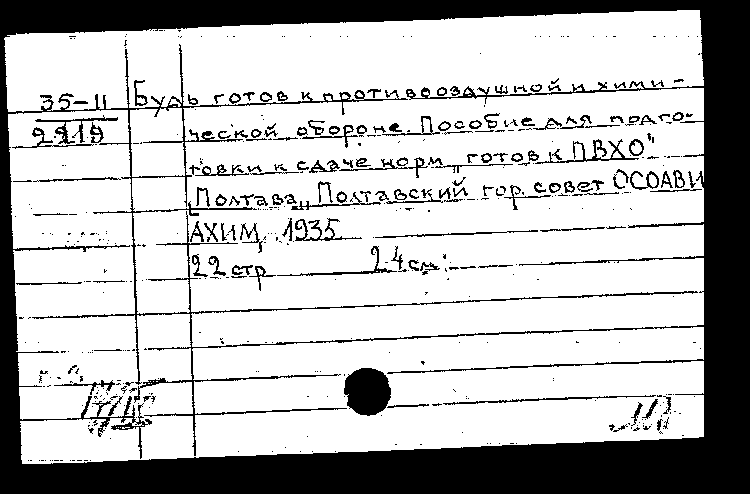 35-11 Будь готов к противовоздушной и хими-
2219 ческой обороне. Пособие для подго-
товки к сдаче норм „готов к ПВХО"
[Полтава„ Полтавский гор. совет ОСОАВИ
АХИМ, 1935
22 стр 24 см.